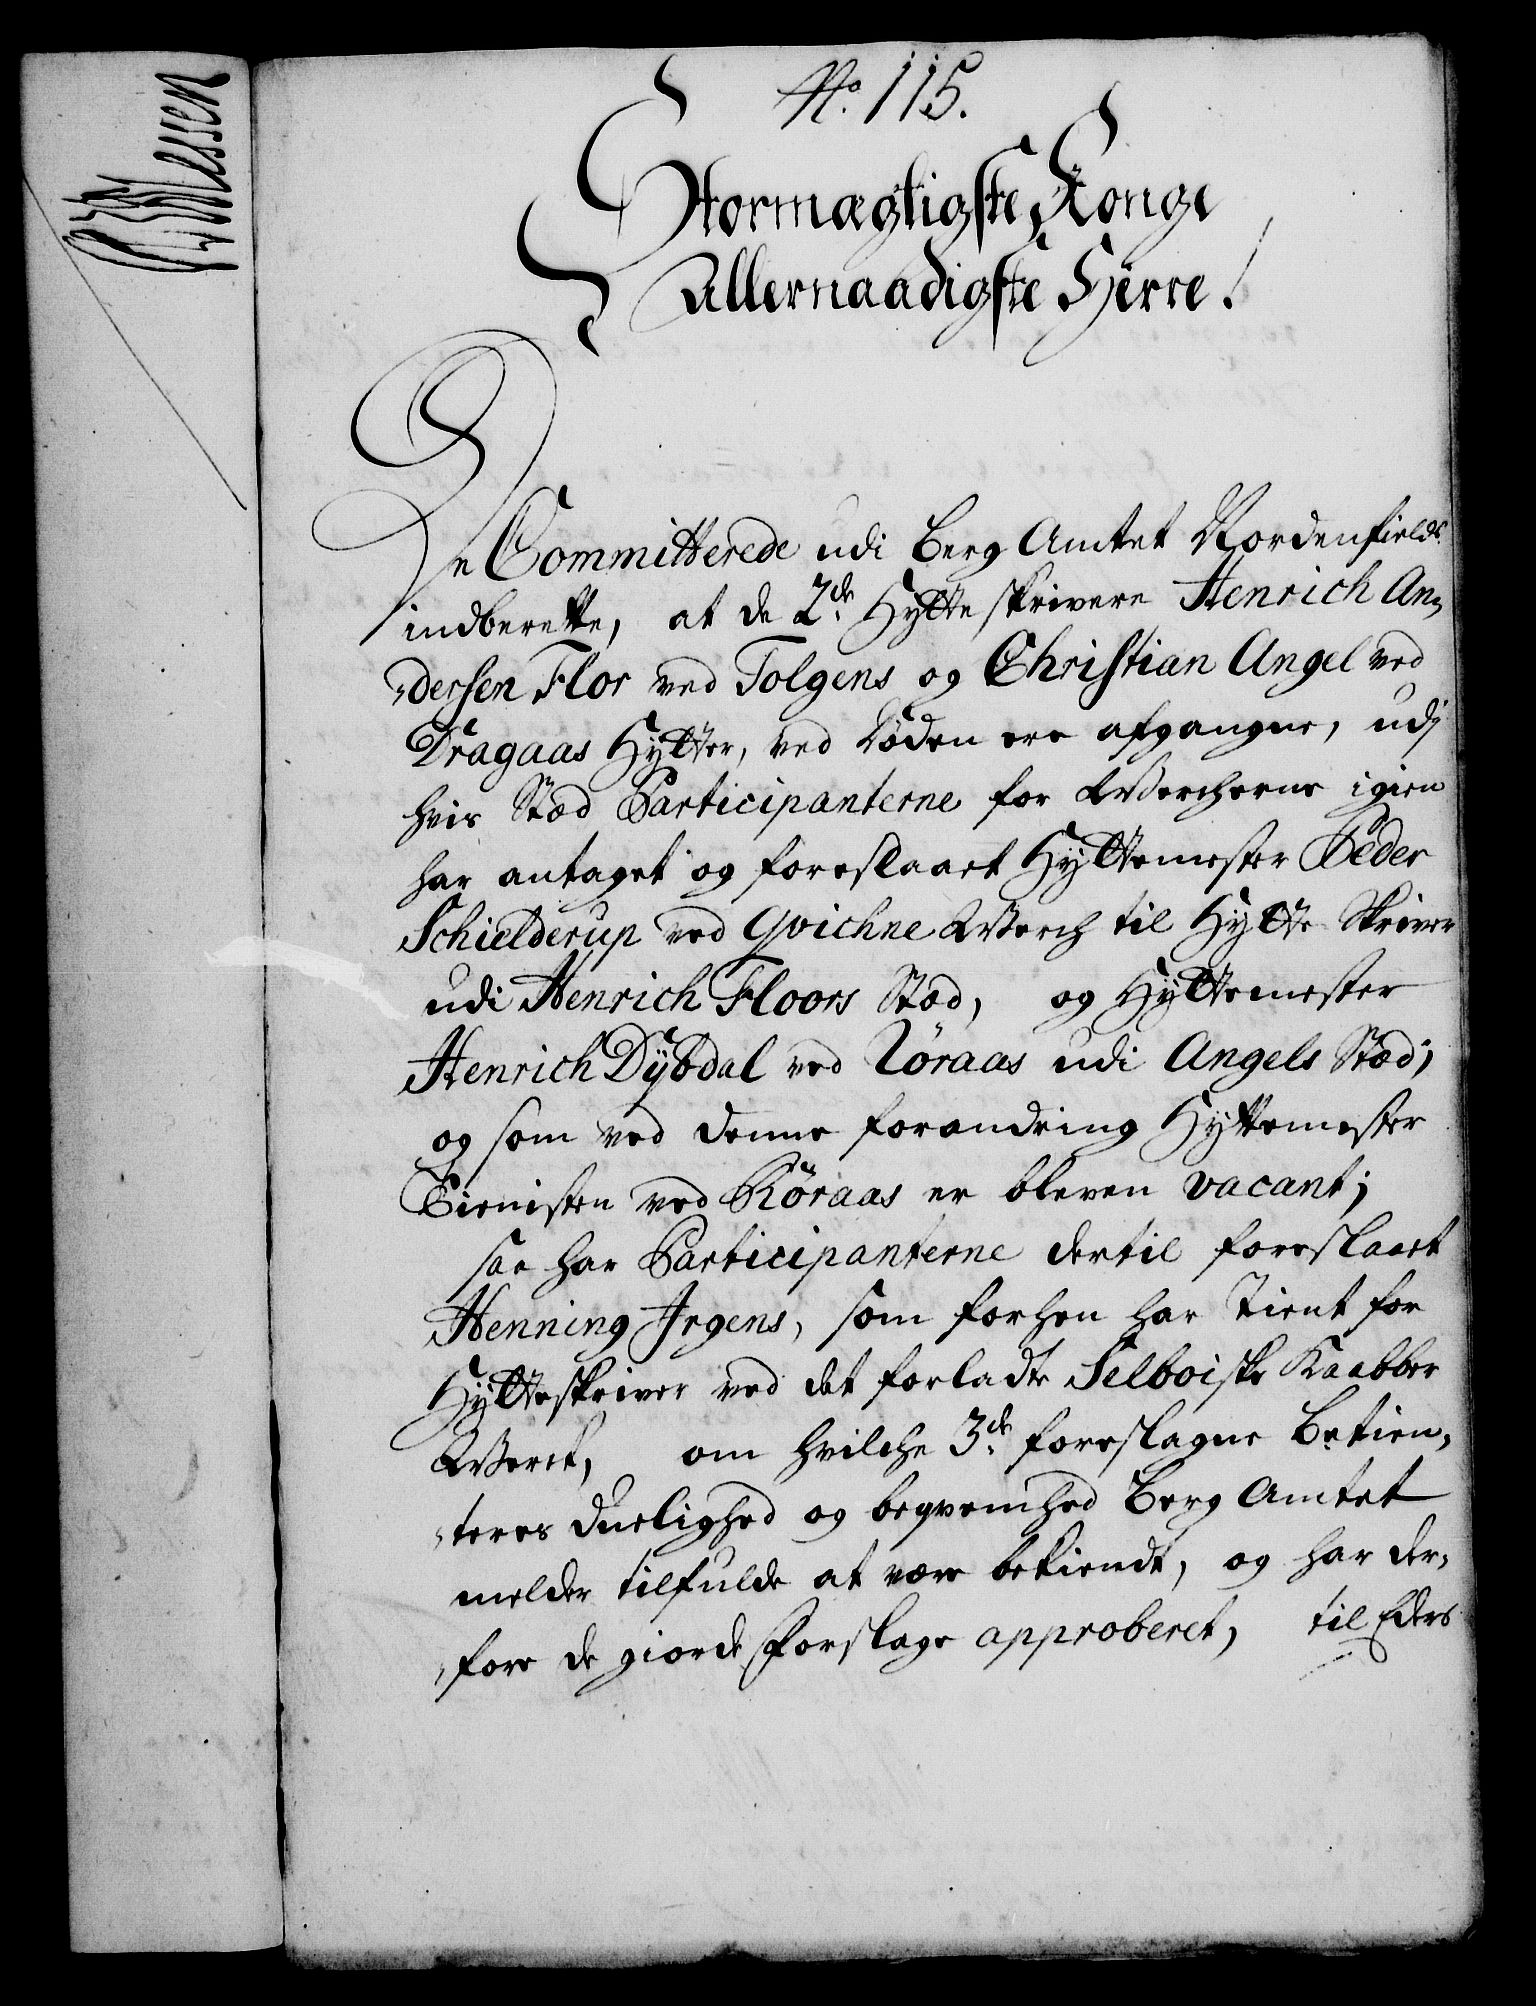 No. 115.
Stormægtigste Konge
Allernaadigste Herre!
De Committerede udi Berg Amtet Nordenfields
indberette, at de 2de Hytteskrivere Henrich An-
dersen Flor ved Tolgens og Christian Angel ved
Dragaas Hytter, ved Døden ere afgangne, udj
hvis Stæd Participanterne for Wercherne igien
har antaget og foreslaaet Hyttemester Peder
Schielderup ved Qvichne Werch til Hytte Skriver
udi Henrich Floors Stæd, og Hyttemester
Henrich Dybdal ved Røraas udi Angels Stæd;
og som ved denne forandring Hyttemester
Tienisten ved Røraas er bleven vacant;
saa har Participanterne dertil foreslaaet
Henning Irgens, som forhen har tient for
Hytteskriver ved det forladte Selboiske Kaabber
Werck, om hvilche 3de foreslagne Betien-
teres duelighed og beqvemhed Berg Amtet
melder tilfulde at være bekiendt, og har der-
fore de giorde Forslage approberet, til Eders